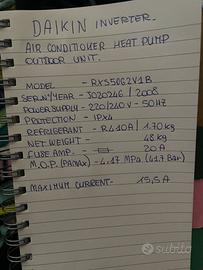 DAIKIN INVERTER.
AIR CONDITIONER HEAT PUMP
OUTDOOR UNIT.
MODEL - RXS50G2V1B
SERIN°/YEAR - 3020246 / 2008
POWER SUPPLY - 220/240V - 50HZ
PROTECTION - IPX4
REFRIGERANT - R410A / 1.70 kg
NET WEIGHT - 48 kg
FUSE AMP. - 20A
M.O.P. (PAMAX) - 4.17 MPa (41.7 Bar)
MAXIMUM CURRENT - 15,5A
subito